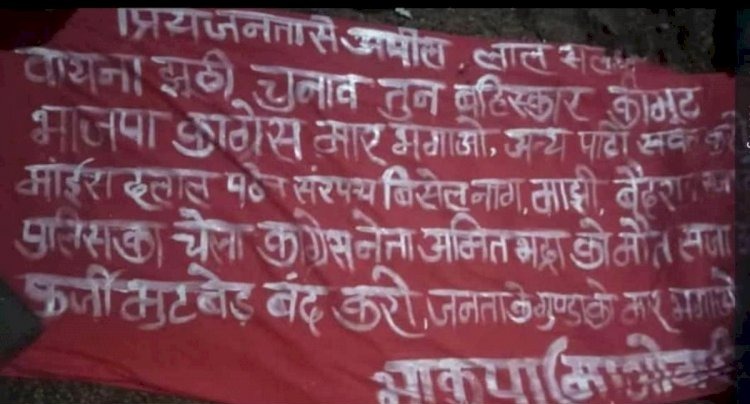 प्रिय जनता से अपील, लाल सलाम
झूठी चुनाव तुन बहिस्कार
भाजपा कांग्रेस मार भगाओ, अन्य पार्टी
दलाल सरपंच बिसेल नाग, माझी,
पुलिसका चेला कांग्रेस नेता अमित भद्रा को मौत सजा
फर्जी मुटबेड़ बंद करो, जनता के गुण्डा को मार भगाओ
भाकपा (माओवादी